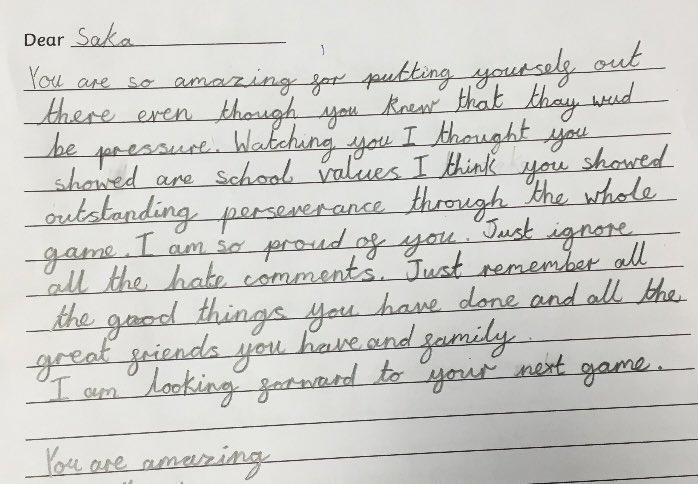 Dear Saka
You are so amazing for putting yourself out
there even though you knew that thay wud
be pressure. Watching you I thought you
showed are school values I think you showed
outstanding perseverance through the whole
game. I am so proud of you. Just ignore
all the hate comments. Just remember all
the good things you have done and all the
great friends you have and family.
I am looking forward to your next game.
You are amazing